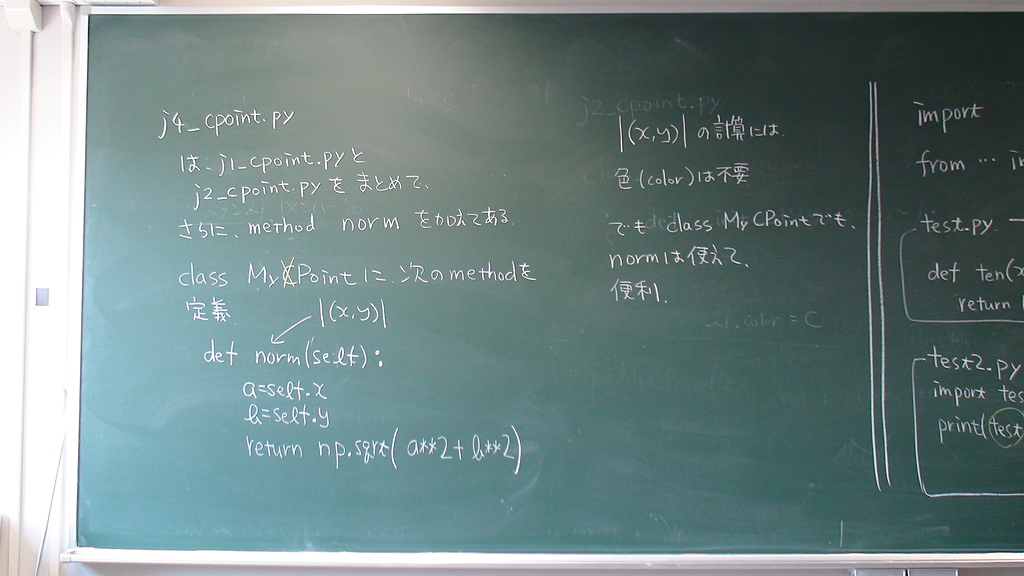 j4_cpoint.py
は、j1_cpoint.pyと
j2_cpoint.pyをまとめて、
さらに、method norm を加えてある.
class MyPointに、次のmethodを
定義.
|(x,y)|
def norm(self):
a=self.x
b=self.y
return np.sqrt(a**2+b**2)
j2_cpoint.py
|(x,y)| の計算には.
色(color)は不要
でも class MyCPointでも、
normは使えて、
便利.
u1.color = C
import
from ...
test.py
def ten(x
return
test2.py
import tes
print(test